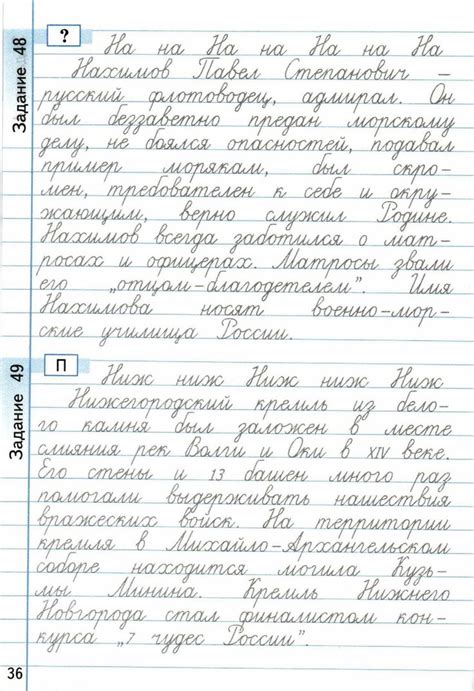 Задание 48
?
На на На на На на На
Нахимов Павел Степанович –
русский флотоводец, адмирал. Он
был беззаветно предан морскому
делу, не боялся опасностей, подавал
пример морякам, был скро-
мен, требователен к себе и окру-
жающим, верно служил Родине.
Нахимов всегда заботился о мат-
росах и офицерах. Матросы звали
его „отцом-благодетелем". Имя
Нахимова носят военно-мор-
ские училища России.
Задание 49
П
Ниж ниж Ниж ниж Ниж
Нижегородский кремль из бело-
го камня был заложен в месте
слияния рек Волги и Оки в XIV веке.
Его стены и 13 башен много раз
помогали выдерживать нашествия
вражеских войск. На территории
кремля в Михайло-Архангельском
соборе находится могила Кузь-
мы Минина. Кремль Нижнего
Новгорода стал финалистом кон-
курса „7 чудес России".
36